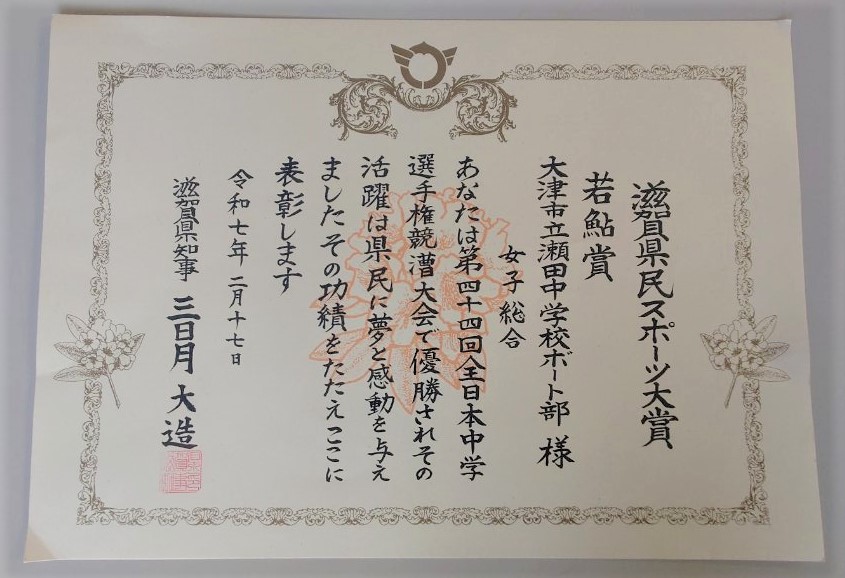 滋賀県民スポーツ大賞
若鮎賞
大津市立瀬田中学校ボート部 様
女子総合
あなたは第四十四回全日本中学
選手権競漕大会で優勝されその
活躍は県民に夢と感動を与え
ましたその功績をたたえここに
表彰します
令和七年 二月十七日
滋賀県知事 三日月 大造